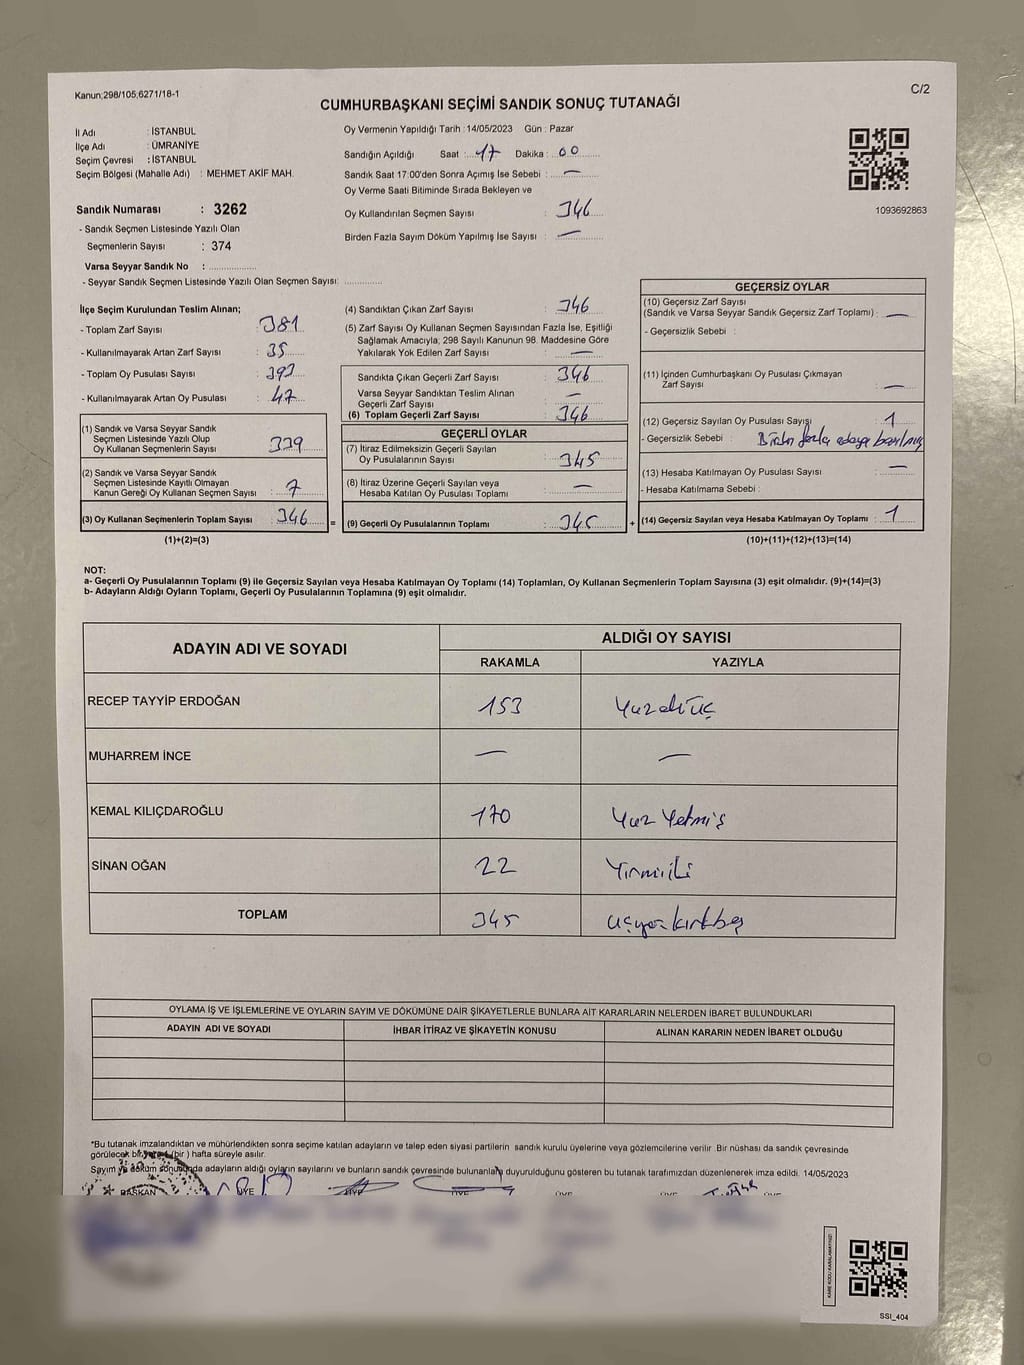 Kanun;298/105;6271/18-1
C/2
CUMHURBAŞKANI SEÇİMİ SANDIK SONUÇ TUTANAĞI
İl Adı : İSTANBUL
İlçe Adı : ÜMRANİYE
Seçim Çevresi : İSTANBUL
Seçim Bölgesi (Mahalle Adı) : MEHMET AKİF MAH.
Sandık Numarası : 3262
- Sandık Seçmen Listesinde Yazılı Olan
Seçmenlerin Sayısı : 374
Varsa Seyyar Sandık No :
- Seyyar Sandık Seçmen Listesinde Yazılı Olan Seçmen Sayısı:
Oy Vermenin Yapıldığı Tarih : 14/05/2023 Gün : Pazar
Sandığın Açıldığı Saat : 17 Dakika : 00
Sandık Saat 17:00'den Sonra Açımış İse Sebebi : —
Oy Verme Saati Bitiminde Sırada Bekleyen ve
Oy Kullandırılan Seçmen Sayısı : 346
Birden Fazla Sayım Döküm Yapılmış İse Sayısı : —
1093692863
İlçe Seçim Kurulundan Teslim Alınan;
- Toplam Zarf Sayısı : 381
- Kullanılmayarak Artan Zarf Sayısı : 35
- Toplam Oy Pusulası Sayısı : 393
- Kullanılmayarak Artan Oy Pusulası : 47
(1) Sandık ve Varsa Seyyar Sandık
Seçmen Listesinde Yazılı Olup
Oy Kullanan Seçmenlerin Sayısı : 339
(2) Sandık ve Varsa Seyyar Sandık
Seçmen Listesinde Kayıtlı Olmayan
Kanun Gereği Oy Kullanan Seçmen Sayısı : 7
(3) Oy Kullanan Seçmenlerin Toplam Sayısı : 346 =
(1)+(2)=(3)
(4) Sandıktan Çıkan Zarf Sayısı : 346
(5) Zarf Sayısı Oy Kullanan Seçmen Sayısından Fazla İse, Eşitliği
Sağlamak Amacıyla; 298 Sayılı Kanunun 98. Maddesine Göre
Yakılarak Yok Edilen Zarf Sayısı : —
Sandıkta Çıkan Geçerli Zarf Sayısı : 346
Varsa Seyyar Sandıktan Teslim Alınan
Geçerli Zarf Sayısı : —
(6) Toplam Geçerli Zarf Sayısı : 346
GEÇERLİ OYLAR
(7) İtiraz Edilmeksizin Geçerli Sayılan
Oy Pusulalarının Sayısı : 345
(8) İtiraz Üzerine Geçerli Sayılan veya
Hesaba Katılan Oy Pusulası Toplamı : —
(9) Geçerli Oy Pusulalarının Toplamı : 345 +
GEÇERSİZ OYLAR
(10) Geçersiz Zarf Sayısı
(Sandık ve Varsa Seyyar Sandık Geçersiz Zarf Toplamı) : —
- Geçersizlik Sebebi :
(11) İçinden Cumhurbaşkanı Oy Pusulası Çıkmayan
Zarf Sayısı : —
(12) Geçersiz Sayılan Oy Pusulası Sayısı : 1
- Geçersizlik Sebebi : Birden fazla adaya basılmış
(13) Hesaba Katılmayan Oy Pusulası Sayısı : —
- Hesaba Katılmama Sebebi :
(14) Geçersiz Sayılan veya Hesaba Katılmayan Oy Toplamı : 1
(10)+(11)+(12)+(13)=(14)
NOT:
a- Geçerli Oy Pusulalarının Toplamı (9) ile Geçersiz Sayılan veya Hesaba Katılmayan Oy Toplamı (14) Toplamları, Oy Kullanan Seçmenlerin Toplam Sayısına (3) eşit olmalıdır. (9)+(14)=(3)
b- Adayların Aldığı Oyların Toplamı, Geçerli Oy Pusulalarının Toplamına (9) eşit olmalıdır.
ADAYIN ADI VE SOYADI
ALDIĞI OY SAYISI
RAKAMLA YAZIYLA
RECEP TAYYİP ERDOĞAN 153 Yüzelliüç
MUHARREM İNCE — —
KEMAL KILIÇDAROĞLU 170 Yüz Yetmiş
SİNAN OĞAN 22 Yirmiiki
TOPLAM 345 Üçyüzkırkbeş
OYLAMA İŞ VE İŞLEMLERİNE VE OYLARIN SAYIM VE DÖKÜMÜNE DAİR ŞİKAYETLERLE BUNLARA AİT KARARLARIN NELERDEN İBARET BULUNDUKLARI
ADAYIN ADI VE SOYADI İHBAR İTİRAZ VE ŞİKAYETİN KONUSU ALINAN KARARIN NEDEN İBARET OLDUĞU
*Bu tutanak imzalandıktan ve mühürlendikten sonra seçime katılan adayların ve talep eden siyasi partilerin sandık kurulu üyelerine veya gözlemcilerine verilir. Bir nüshası da sandık çevresinde
görülecek bir (bir) hafta süreyle asılır.
Sayım ve döküm sonusunda adayların aldığı oyların sayılarını ve bunların sandık çevresinde bulunanlara duyurulduğunu gösteren bu tutanak tarafımızdan düzenlenerek imza edildi. 14/05/2023
BAŞKAN ÜYE ÜYE ÜYE ÜYE ÜYE ÜYE
KARE KODU KARALAMAYINIZ!
SSI_404